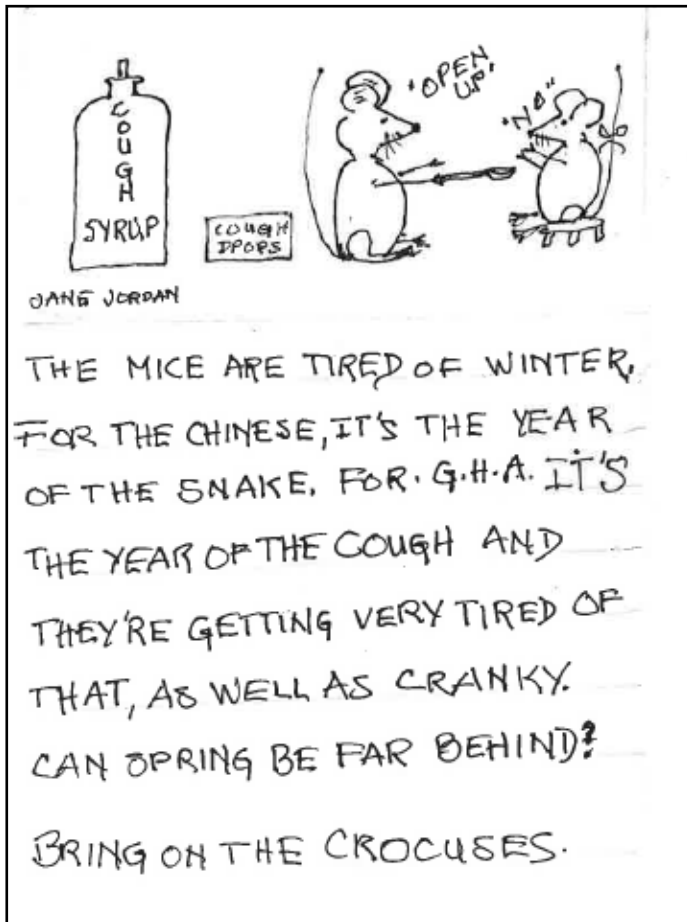 COUGH
SYRUP
COUGH
DPOPS
"OPEN
UP."
"NO"
JANE JORDAN
THE MICE ARE TIRED OF WINTER.
FOR THE CHINESE, IT'S THE YEAR
OF THE SNAKE. FOR. G.H.A. IT'S
THE YEAR OF THE COUGH AND
THEY'RE GETTING VERY TIRED OF
THAT, AS WELL AS CRANKY.
CAN SPRING BE FAR BEHIND?
BRING ON THE CROCUSES.